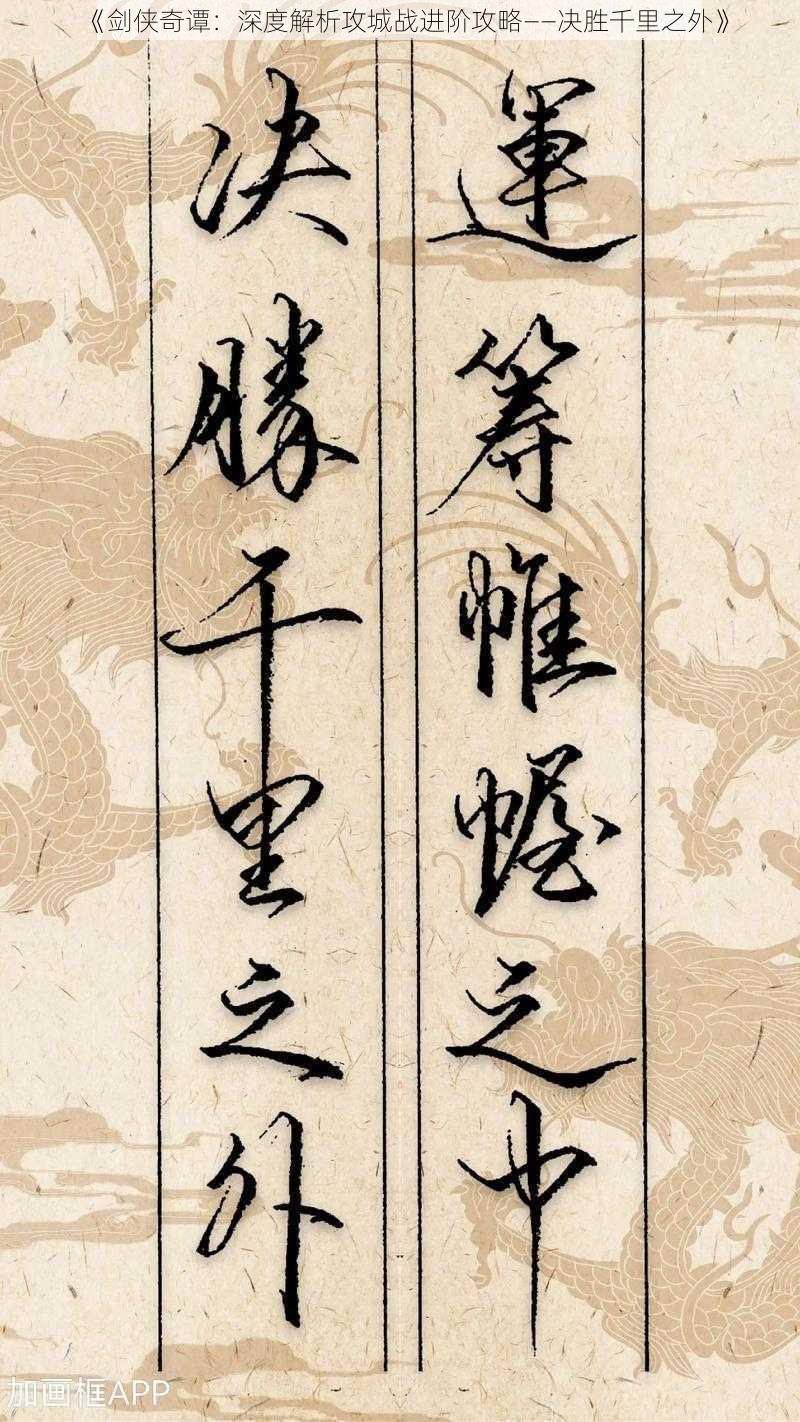 《剑侠奇谭：深度解析攻城战进阶攻略——决胜千里之外》
運筹帷幄之中
决勝千里之外
加画框APP